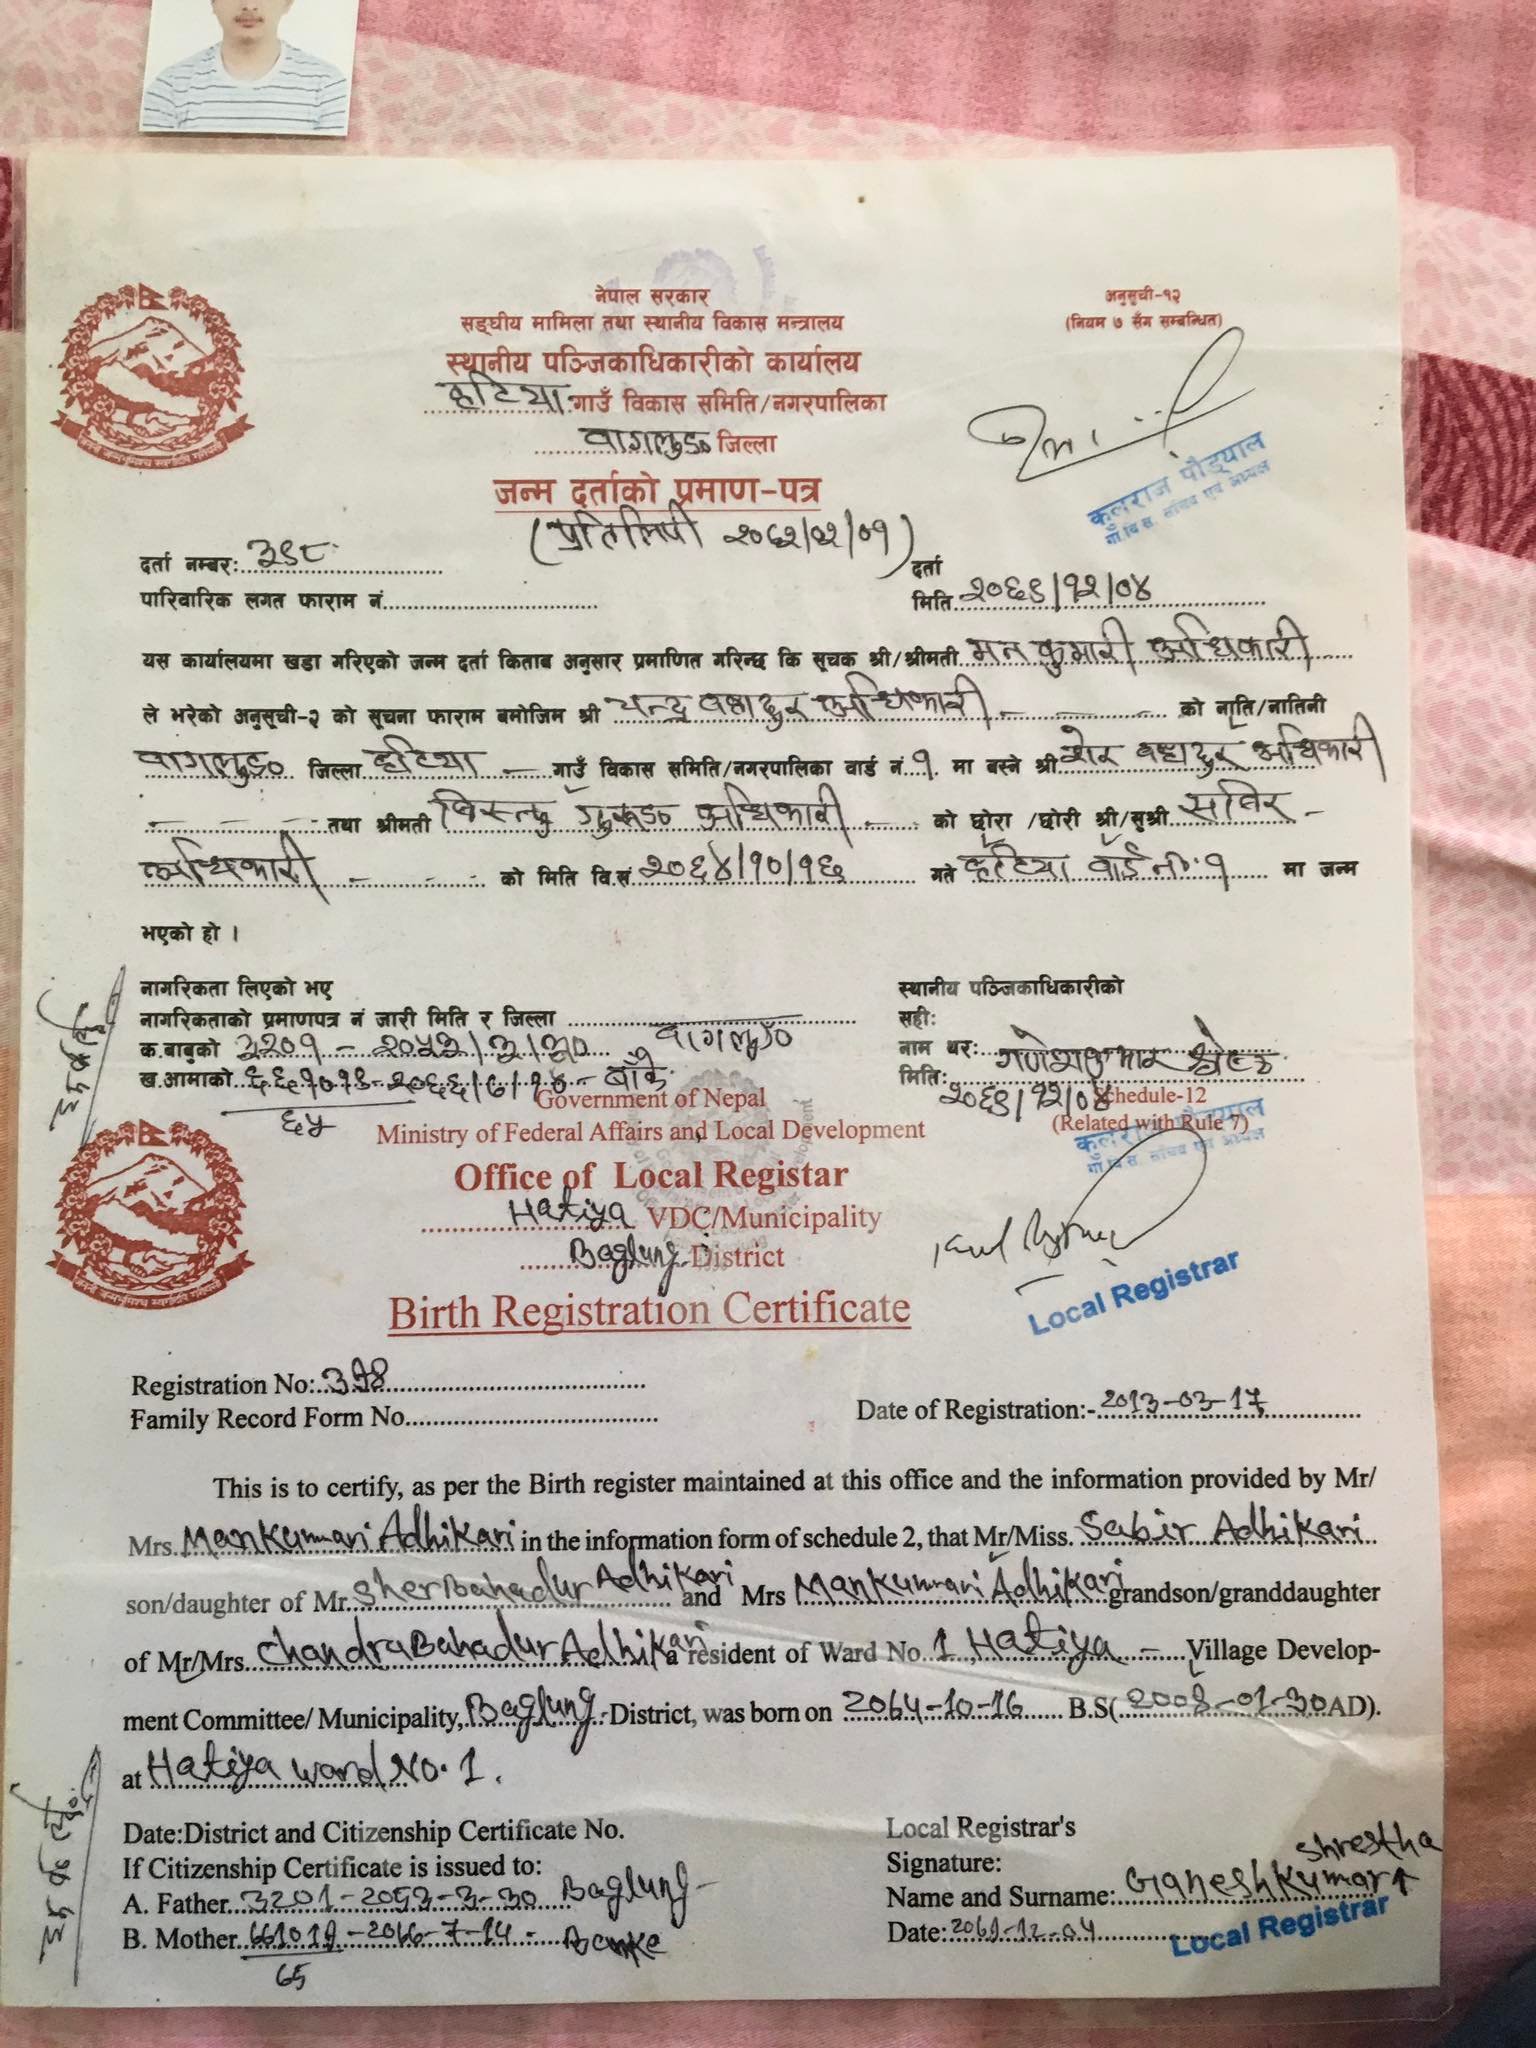 नेपाल सरकार
सङ्घीय मामिला तथा स्थानीय विकास मन्त्रालय
स्थानीय पञ्जिकाधिकारीको कार्यालय
हटिया गाउँ विकास समिति/नगरपालिका
वागलुङ जिल्ला
अनुसूची-१२
(नियम ७ सँग सम्बन्धित)
कुलराज पौड्याल
गाँ.वि.स. सचिव एवं अध्यक्ष
जन्म दर्ताको प्रमाण-पत्र
(प्रतिलिपी २०७२/०२/०१)
दर्ता नम्बर: ३९८
दर्ता
पारिवारिक लगत फाराम नं.
मिति २०६९/१२/०४
यस कार्यालयमा खडा गरिएको जन्म दर्ता किताब अनुसार प्रमाणित गरिन्छ कि सूचक श्री/श्रीमती मन कुमारी अधिकारी
ले भरेको अनुसूची-२ को सूचना फाराम बमोजिम श्री चन्द्र वहादुर अधिकारी को नाति/नातिनी
वागलुङ जिल्ला हटिया गाउँ विकास समिति/नगरपालिका वार्ड नं. १ मा बस्ने श्री शेर वहादुर अधिकारी
तथा श्रीमती अधिकारी को छोरा /छोरी श्री/सुश्री सविर
अधिकारी को मिति वि.सं २०६४/१०/१६ गते हटिया वार्ड नं. १ मा जन्म
भएको हो ।
नागरिकता लिएको भए
नागरिकताको प्रमाणपत्र नं जारी मिति र जिल्ला
क.बाबुको ३२०१ - २०५३/३/३० वागलुङ
ख.आमाको ६६१०१९ - २०६६/७/१४ - बाँके
६५
स्थानीय पञ्जिकाधिकारीको
सही:
नाम थर: गणेशकुमार श्रेष्ठ
मिति: २०६९/१२/०४
Government of Nepal
Ministry of Federal Affairs and Local Development
Office of Local Registar
Hatiya VDC/Municipality
Baglung District
Schedule-12
(Related with Rule 7)
कुलराज पौड्याल
गाँ.वि.स. सचिव एवं अध्यक्ष
Local Registrar
Birth Registration Certificate
Registration No: 398
Family Record Form No.
Date of Registration:- 2013-03-17
This is to certify, as per the Birth register maintained at this office and the information provided by Mr/
Mrs. Mankumari Adhikari in the information form of schedule 2, that Mr/Miss. Sabir Adhikari
son/daughter of Mr. Sher Bahadur Adhikari and Mrs Mankumari Adhikari grandson/granddaughter
of Mr/Mrs. Chandra Bahadur Adhikari a resident of Ward No. 1, Hatiya - Village Develop-
ment Committee/ Municipality, Baglung District, was born on 2064-10-16 B.S( 2008-01-30 AD).
at Hatiya ward No. 1.
Date:District and Citizenship Certificate No.
If Citizenship Certificate is issued to:
A. Father 3201-2053-3-30 Baglung
B. Mother 661019-2066-7-14 - Banke
65
Local Registrar's
Signature:
Name and Surname: Ganeshkumar Shrestha
Date: 2069-12-04
Local Registrar